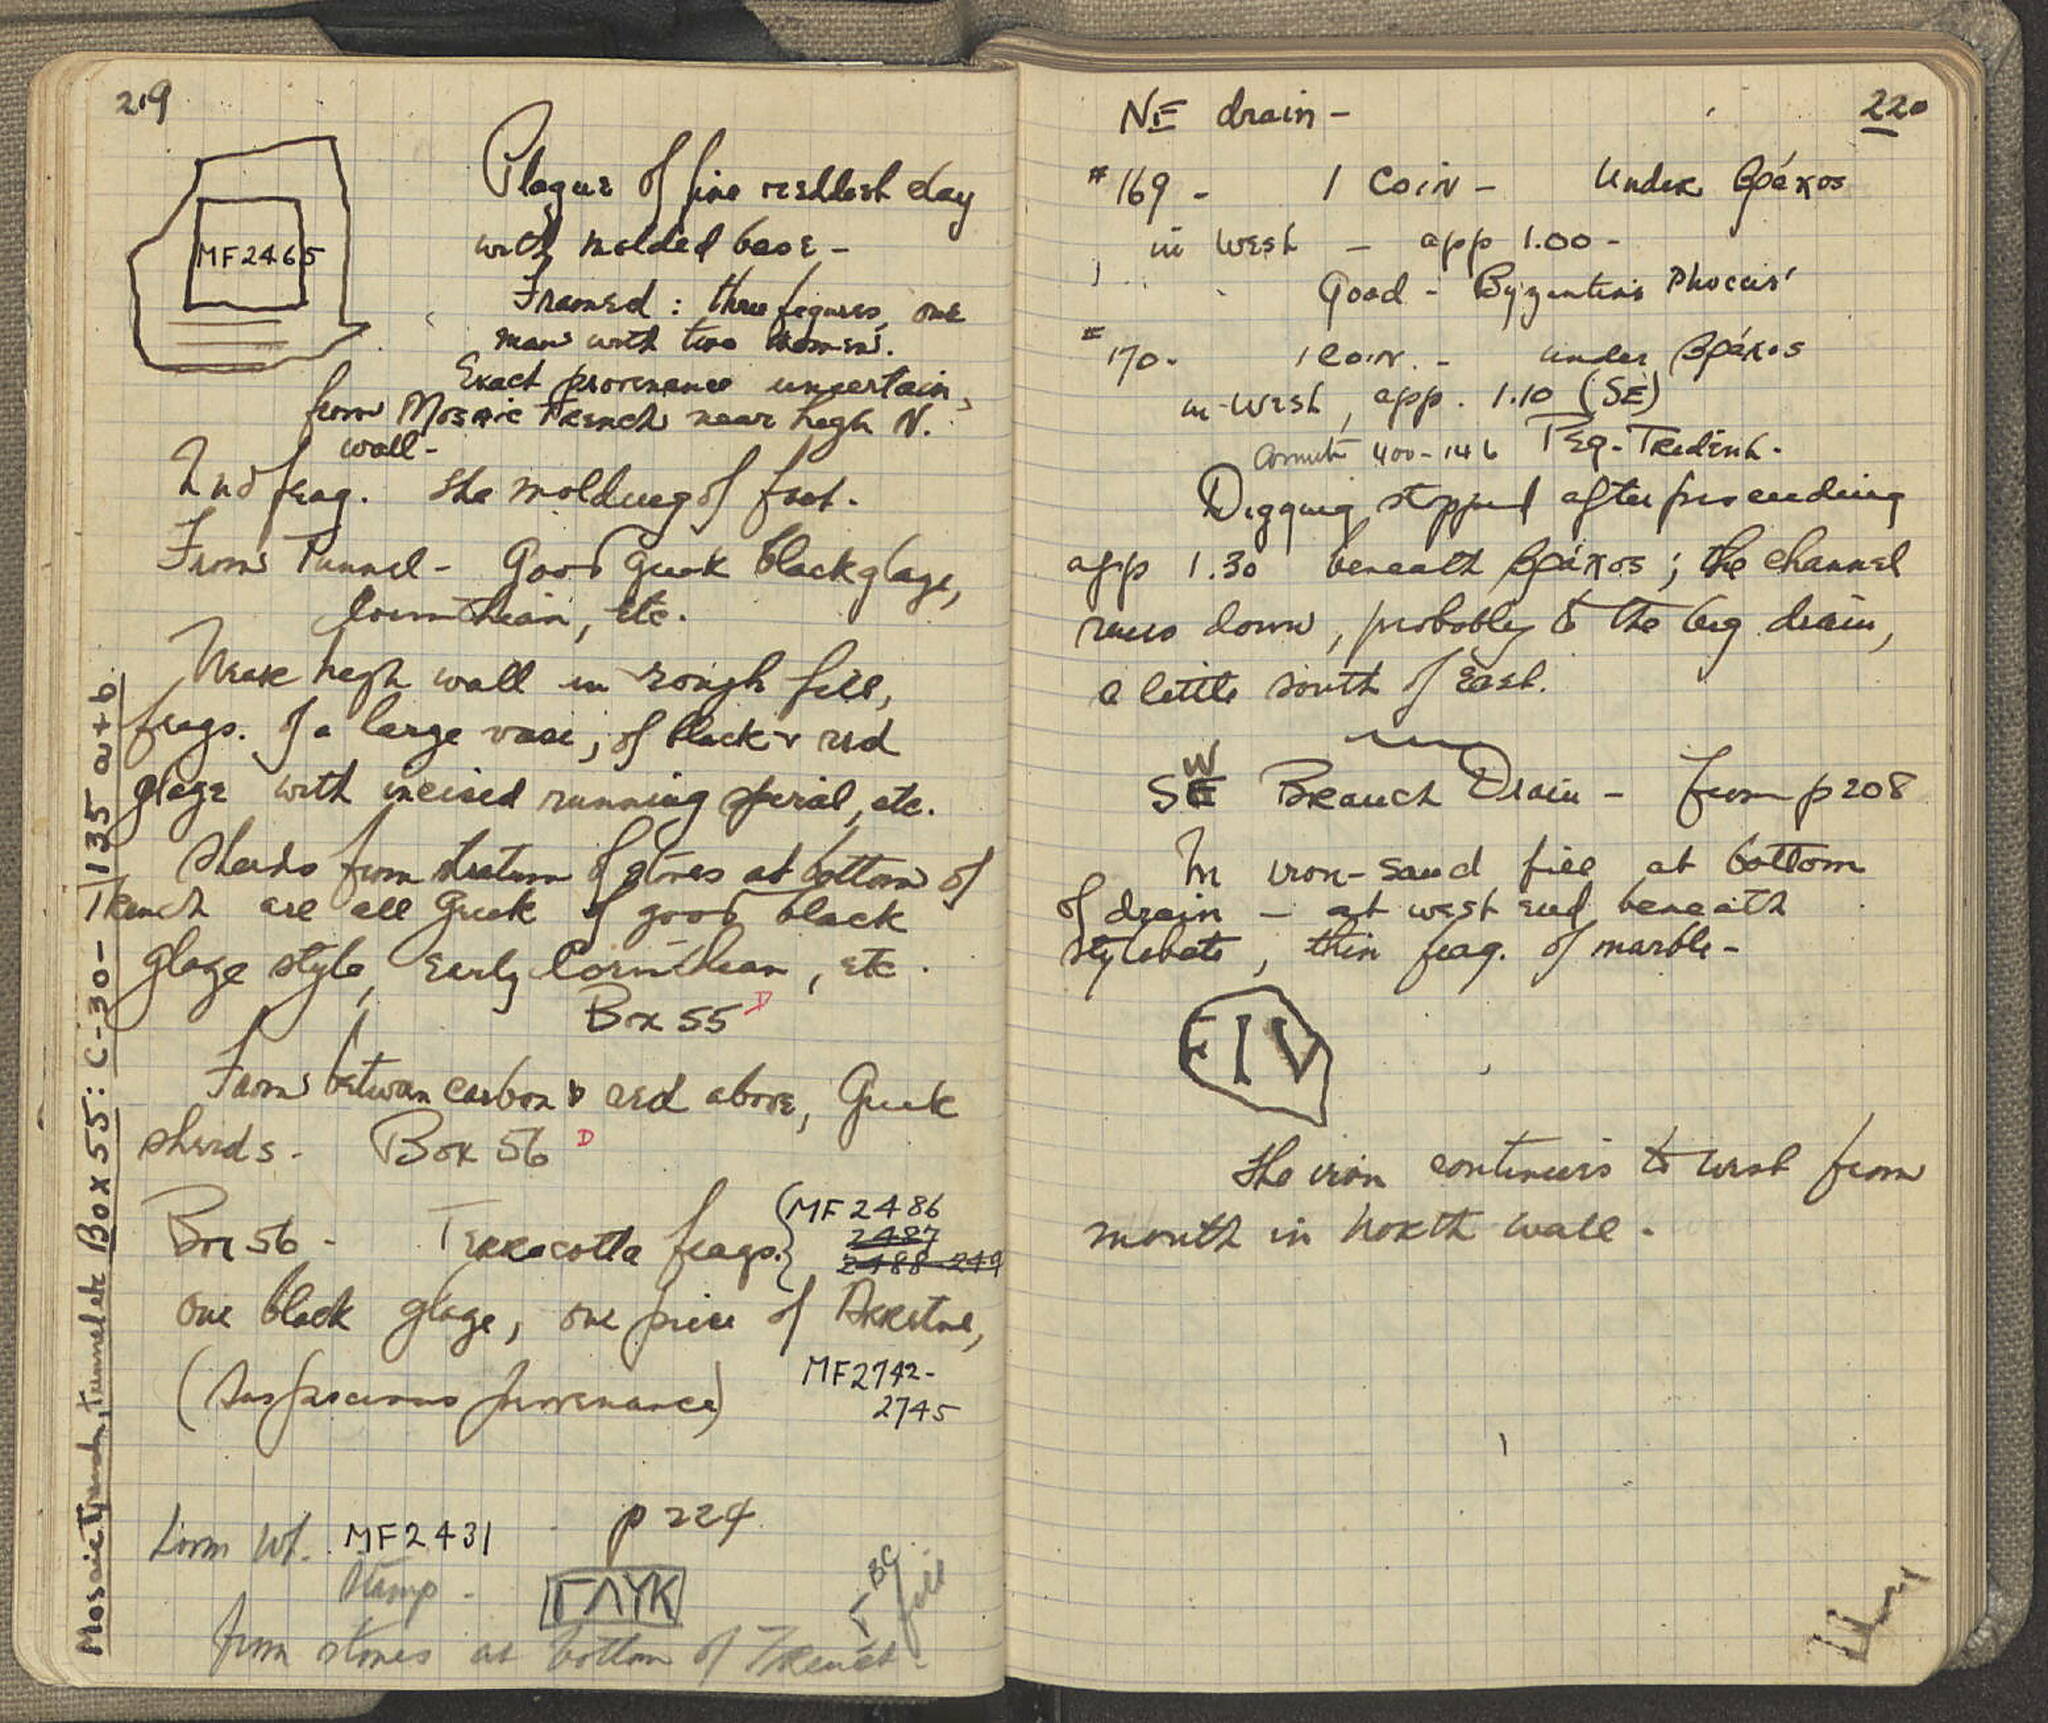 219
MF2465
Plaque of fine reddish clay
with molded base -
Framed : three figures, one
man with two women.
Exact provenance uncertain,
from Mosaic Trench near high N.
wall -
2nd frag. the molding of foot.
From Tunnel - Good Greek black glaze,
Corinthian, etc.
Near high wall in rough fill,
frags. of a large vase, of black & red
glaze with incised running spiral, etc.
Sherds from stratum of stones at bottom of
Trench are all Greek of good black
glaze style, Early Corinthian, etc.
Box 55 D
From between carbon & red above, Greek
sherds. Box 56 D
Box 56 - Terracotta frags. { MF2486
2487
2488-249
one black glaze, one piece of Arretine,
(Suspicious provenance) MF2742-
2745
Loom Wt. MF2431 p 224
Stamp - ΓΛΥΚ
from stones at bottom of Trench -
BC fill
Mosaic Trench, tunnel Box 55: C-30-135 a+b
NE drain - 220
#169 - 1 Coin - Under βράχος
in West - app 1.00 -
Good - Byzantine Phocas
#170 - 1 Coin - under βράχος
in West, app. 1.10 (SE)
400-146 Peg-Trident -
Digging stopped after proceeding
app 1.30 beneath βράχος; the channel
runs down, probably to the big drain,
a little south of East.
W
SE Branch Drain - from p 208
In iron-sand fill at bottom
of drain - at west end beneath
stylobate, thin frag. of marble -
EIV
The iron continues to west from
mouth in North wall -